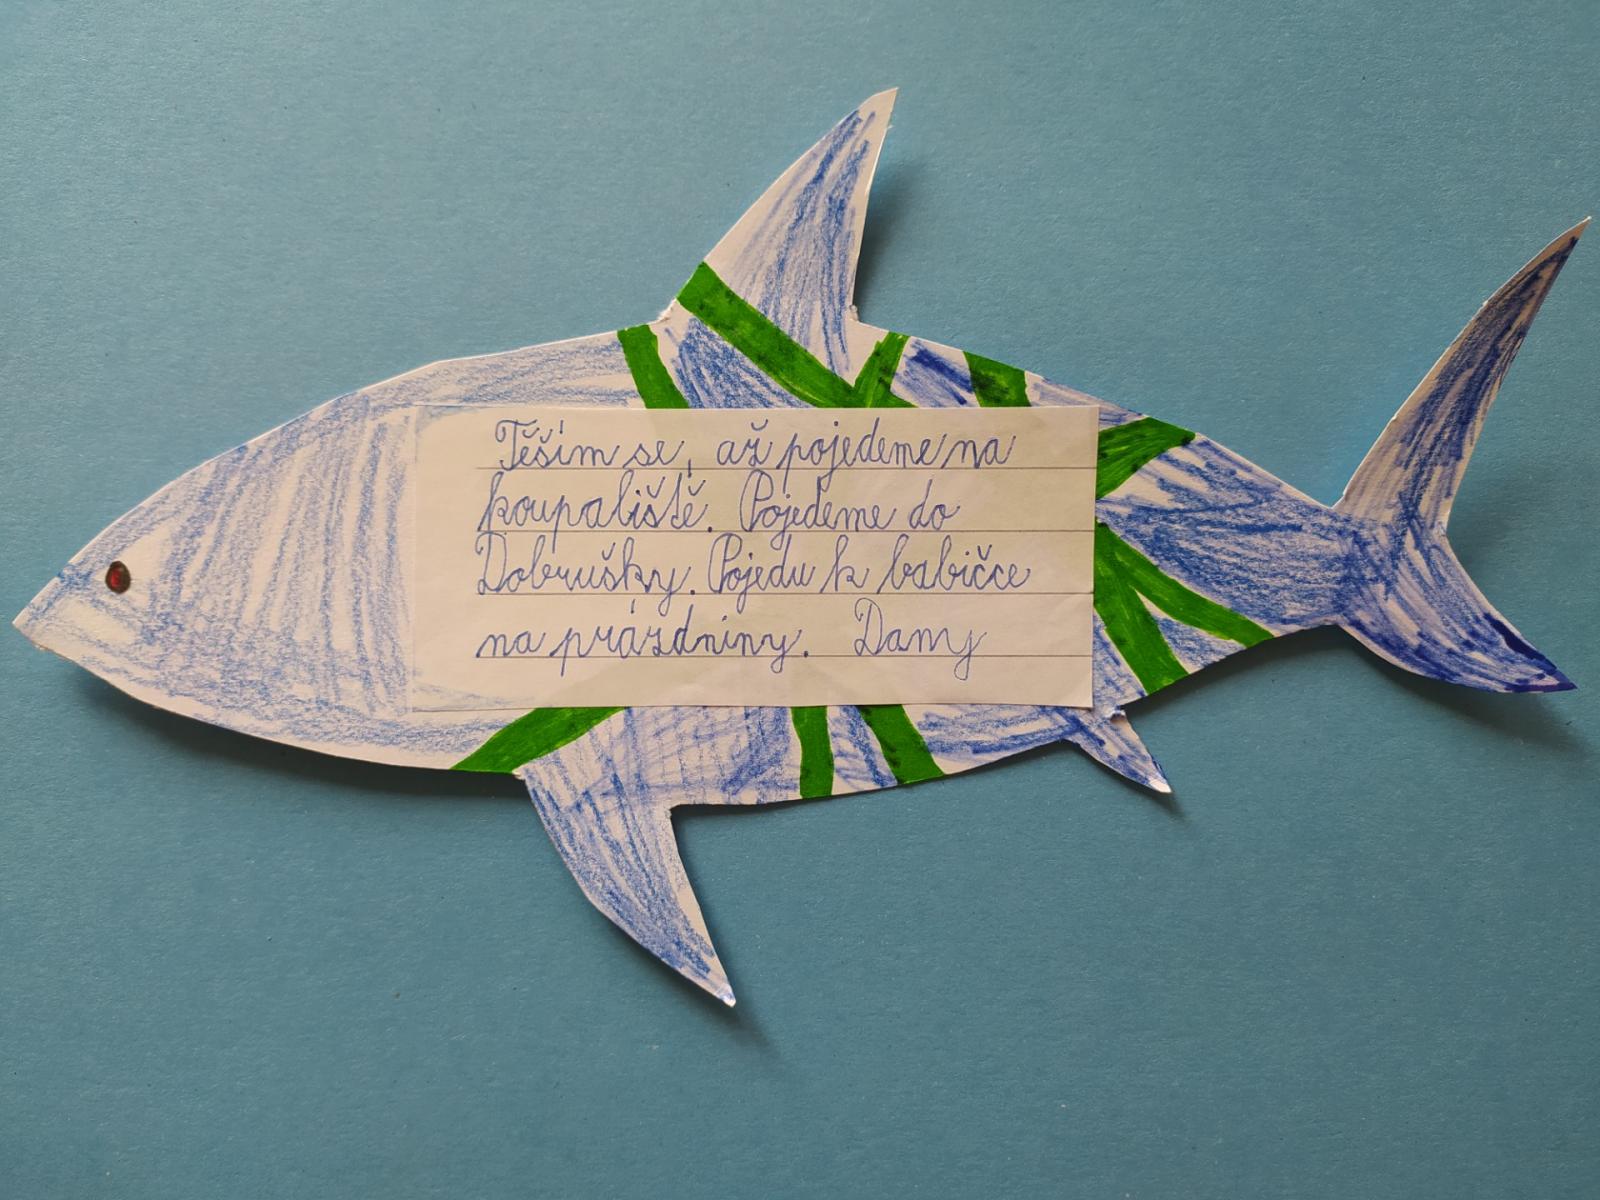 Těším se, až pojedeme na
koupaliště. Pojedeme do
Dobrušky. Pojedu k babičce
na prázdniny. Damy